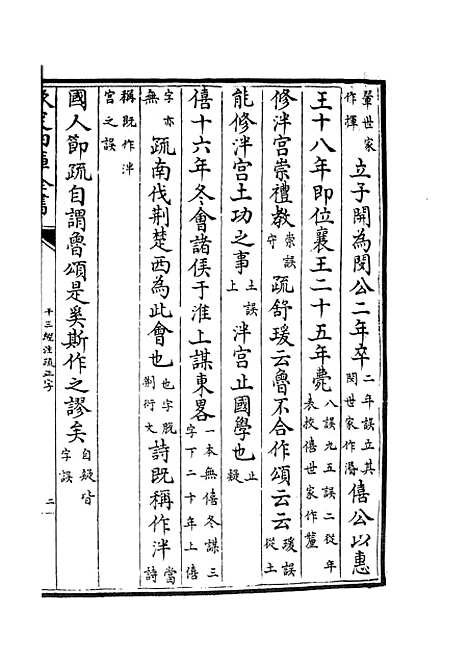 翬世家作揮立子開為閔公二年卒二年誤立其閔世家作湣僖公以惠
王十八年即位襄王二十五年薨八誤九五誤二從年表挍僖世家作釐
修泮宫崇禮教崇誤守疏舒瑗云魯不合作頌云云瑗誤從土
能修泮宫土功之事土誤上泮宫止國學也止疑
僖十六年冬會諸侯于淮上謀東畧一本無僖冬謀三字下二十年上僖
字亦無疏南伐荆楚西為此會也也字既荆衍文詩既稱作泮當詩
稱既作泮宫之誤
國人節疏自謂魯頌是奚斯作之謬矣自疑皆字誤
四庫全書
十三經注疏正字
二